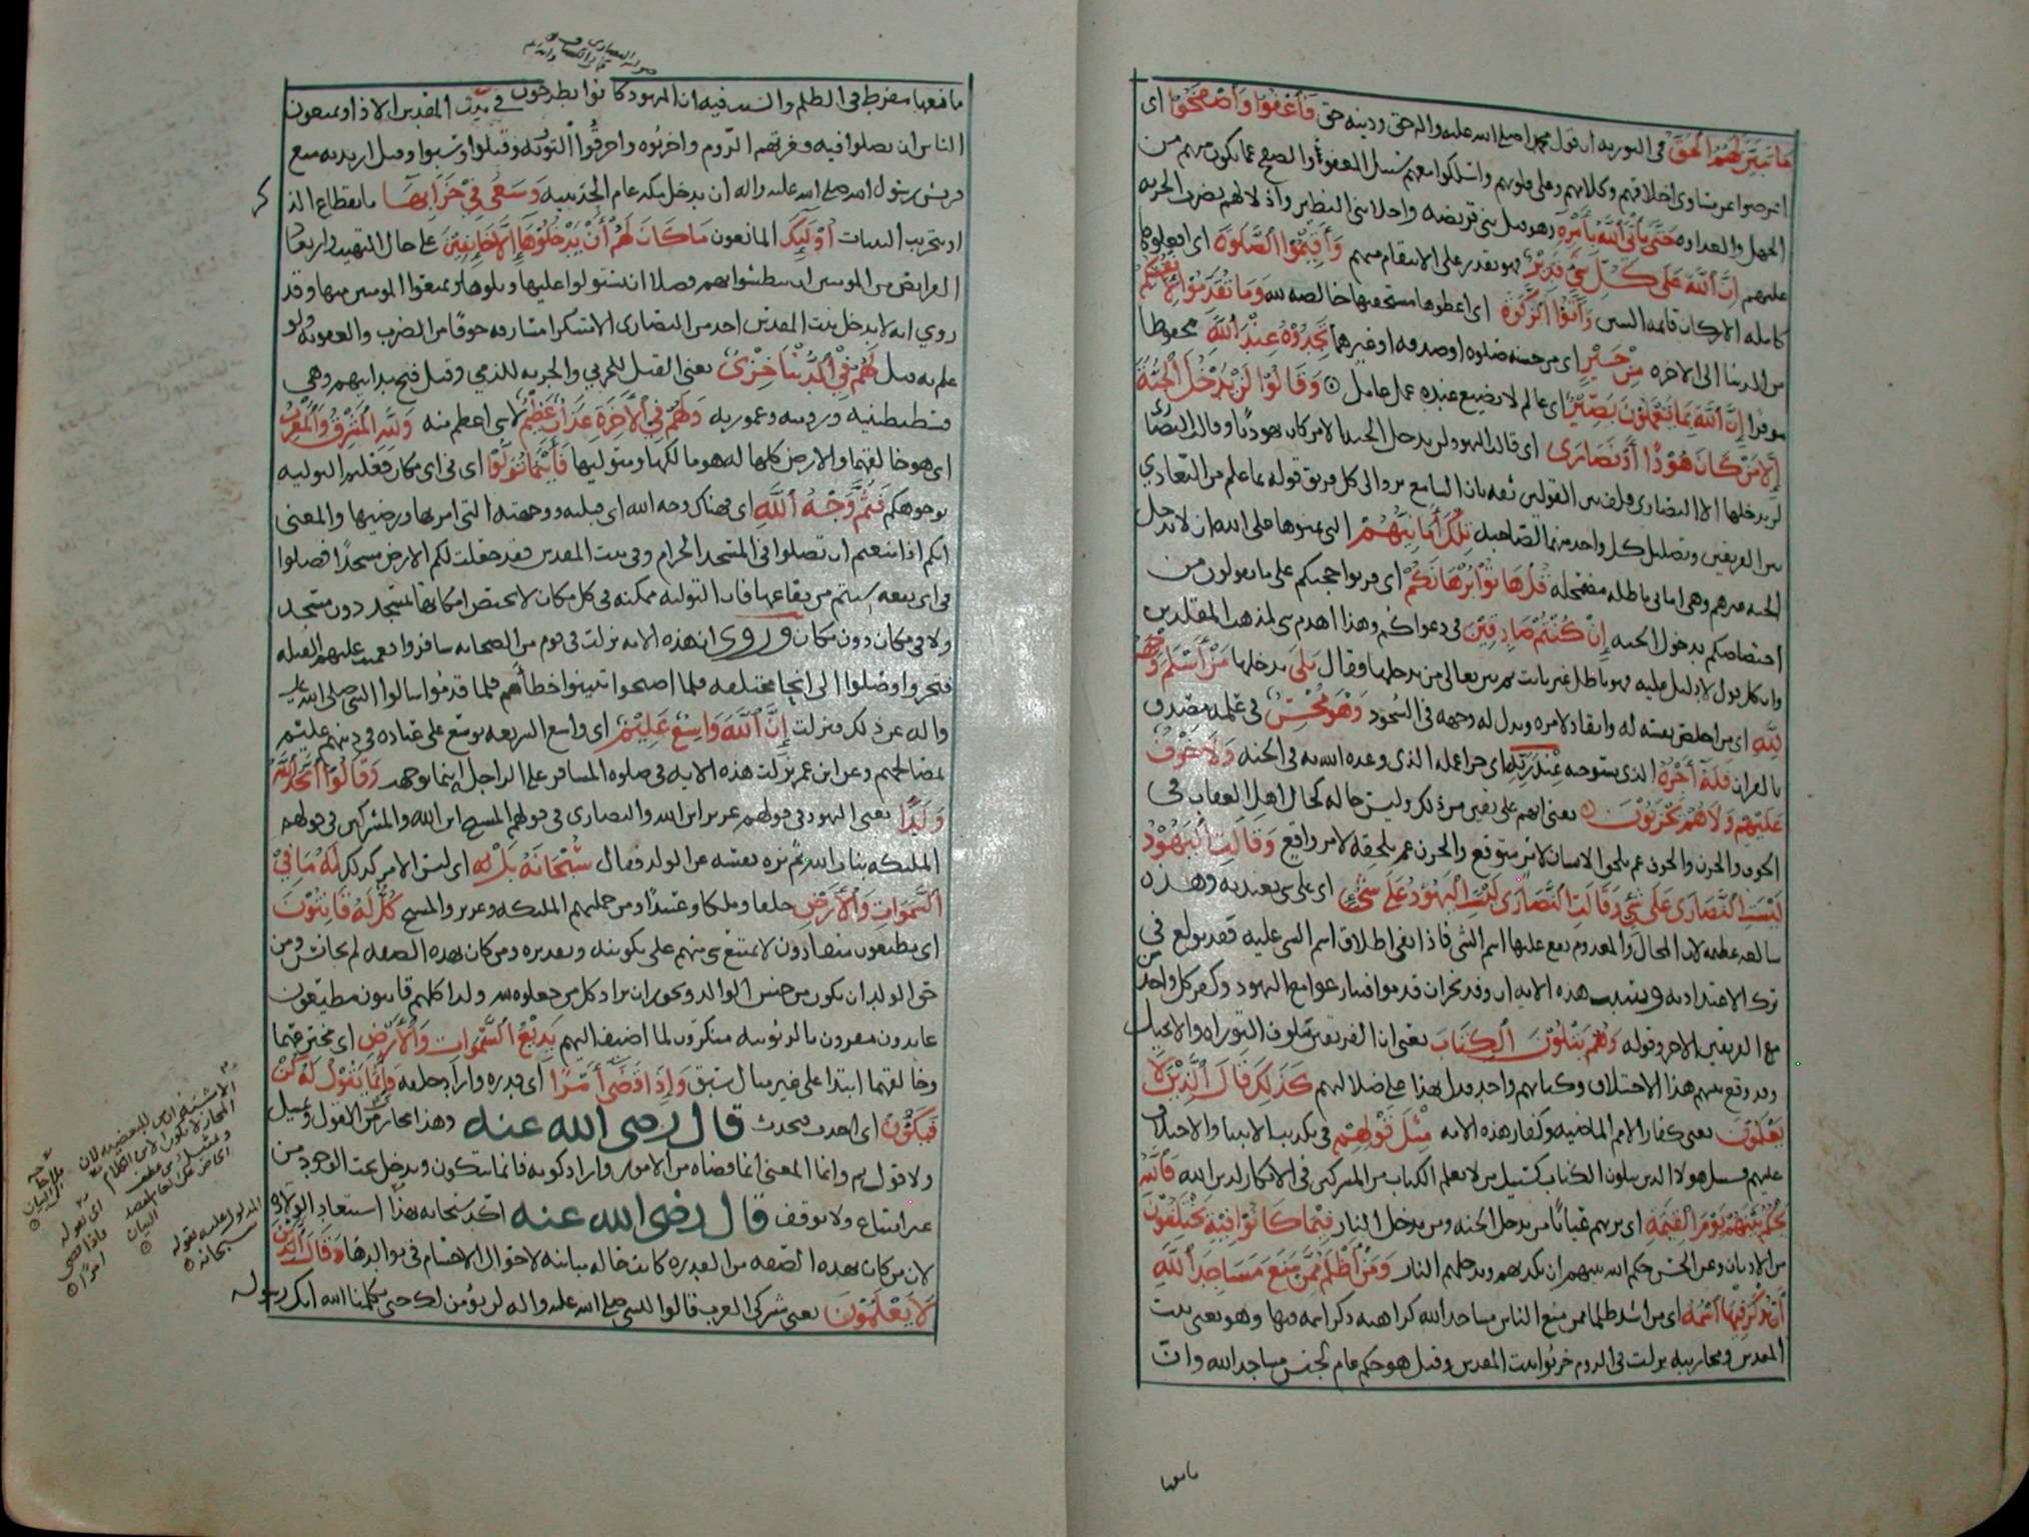 ما تبين لهم الحق في التوريه ان قول محمد صلى الله عليه واله حق ودينه حق فاعفوا واصفحوا اى
اعرضوا عن مساوى اخلاقهم وكلامهم وعلى قلوبهم واسلكوا معهم سبيل العفو والصفح عما يكون منهم من
الجهل والعداوه حتى يأتى الله بأمره وهو قتل بنى قريضه واجلا بنى النظير واذلالهم بضرب الجزيه
عليهم ان الله على كل شئ قدير فهو يقدر على الانتقام منهم وأقيموا الصلوة اى افعلوها
كامله الاركان قايمه السنن وآتوا الزكوة اى اعطوها مستحقيها خالصه لله وما تقدموا لأنفسكم
من الدنيا الى الاخره من خير اى من حسنه صلوه او صدقه او غيرهما تجدوه عند الله محفوظا
موفرا إن الله بما تعملون بصير اى عالم لا يضيع عنده عمل عامل وقالوا لن يدخل الجنة
إلا من كان هودًا أو نصارى اى قالت اليهود لن يدخل الجنه الا من كان هودًا وقالت النصارى
لن يدخلها الا النصارى فلف بين القولين ثقه بان السامع يرد الى كل فريق قوله بما علم من التعادي
بين الفريقين وتضليل كل واحد منهما لصاحبه تلك أمانيهم التى تمنوها على الله ان لا يدخل
الجنه غيرهم وهى امانى باطله مضمحله قل هاتوا برهانكم اى قربوا حجتكم على ما تقولون من
اختصاصكم بدخول الجنه إن كنتم صادقين في دعواكم وهذا اهدم شى لمذهب المقلدين
وان كل قول لا دليل عليه فهو باطل غير ثابت ثم بين تعالى من يدخلها فقال بلى يدخلها من أسلم وجهه
لله اى من اخلص نفسه له وانقاد لامره وبذل له وجهه في السجود وهو محسن في عمله مصدق
بالقران فله أجره الذى يستوجبه عند ربه اى جزا عمله الذى وعده الله به في الجنه ولا خوف
عليهم ولا هم يحزنون يعنى انهم على يقين من ذلك وليس حاله كحال اهل العقاب في
الخوف والحزن والخوف غم يلحق الانسان لامر متوقع والحزن غم يلحقه لامر واقع وقالت اليهود
ليست النصارى على شئ وقالت النصارى ليست اليهود على شئ اى على شى يعتد به وهذه
مبالغه عظيمه لان المحال والمعدوم يقع عليها اسم الشى فاذا نفى اطلاق اسم الشى عليه فقد بولغ في
ترك الاعتداد به وسبب هذه الايه ان وفد نجران قدموا فتنازعوا مع اليهود وكفر كل واحد من
من الفريقين الاخر وقوله وهم يتلون الكتاب يعنى ان الفريقين يتلون التوراه والانجيل
وقد وقع بينهم هذا الاختلاف وكتابهم واحد فدل بهذا على ضلالتهم كذلك قال الذين لا
يعلمون يعنى كفار الامم الماضيه وكفار هذه الامه مثل قولهم في تكذيب الانبيا والاختلاف
عليهم فسبيل هولا الذين يتلون الكتاب كسبيل من لا يعلم الكتاب من المشركين في الانكار لدين الله فالله
يحكم بينهم يوم القيمة اى يريهم عيانًا من يدخل الجنه ومن يدخل النار فيما كانوا فيه يختلفون
من الاديان وعن الحسن حكم الله بينهم ان يكذبهم ويدخلهم النار ومن أظلم ممن منع مساجد الله
أن يذكر فيها اسمه اى من اشد ظلما ممن منع الناس مساجد الله كراهه ذكر اسمه فيها وهو يعنى بيت
المقدس ومحاربيه نزلت في الروم خربوا بيت المقدس وقيل هو حكم عام لجنس مساجد الله وان
مانعها
مانعها مفرط في الظلم والسبب فيه ان اليهود كانوا يطرحون في بيت المقدس الاذا ويمنعون
الناس ان يصلوا فيه وغزتهم الروم واخربوه واحرقوا التوريه وقتلوا وسبوا وقيل اريد به منع
قريش رسول الله صلى الله عليه واله ان يدخل مكه عام الحديبيه وسعى في خرابها بانقطاع الذكر
او بتخريب البنيان أولئك المانعون ما كان لهم أن يدخلوها إلا خائفين على حال التهيب وارتعاد
الفرايض من المومنين ان يبطشوا بهم فضلا ان يستولوا عليها ويلوها ويمنعوا المومنين منها وقد
روي انه لا يدخل بيت المقدس احد من النصارى الا متنكرا مسارقه خوفا من الضرب والعقوبه ولو
علم به قتل لهم في الدنيا خزى يعنى القتل للحربي والجزيه للذمي وقيل فتح مداينهم وهي
قسطنطنيه وروميه وعموريه ولهم في الآخرة عذاب عظيم لا شى اعظم منه ولله المشرق والمغرب
اى هو خالقهما والارض كلها له هو مالكها ومتوليها فأينما تولوا اى في اى مكان فعلتم التوليه
بوجوهكم فثم وجه الله اى فهناك وجه الله اى قبلته ووجهته التى امر بها ورضيها والمعنى
انكم اذا منعتم ان تصلوا في المسجد الحرام وفى بيت المقدس فقد جعلت لكم الارض مسجدًا فصلوا
في اى بقعه شيتم من بقاعها فان التوليه ممكنه في كل مكان لا يختص امكانها بمسجد دون مسجد
ولا في مكان دون مكان وروى ان هذه الايه نزلت في قوم من الصحابه سافروا فعميت عليهم القبله
فتحروا وصلوا الى انحا مختلفه فلما اصبحوا تبينوا خطأهم فلما قدموا سالوا النبى صلى الله عليه
واله عن ذلك فنزلت إن الله واسع عليم اى واسع الشريعه يوسع على عباده في دينهم عليم
بمصالحهم وعن ابن عمر نزلت هذه الايه في صلوه المسافر على الراحله اينما توجهت وقالوا اتخذ الله
ولدًا يعنى اليهود في قولهم عزير ابن الله والنصارى في قولهم المسيح ابن الله والمشركين في قولهم
المليكه بنات الله ثم نزه نفسه عن الولد فقال سبحانه بل له اى ليس الامر كذلك له ما في
السموات والأرض خلقا وملكا وعبيدًا ومن جملتهم المليكه وعزير والمسيح كل له قانتون
اى مطيعون منقادون لا يمتنع شى منهم على تكوينه وتقديره ومن كان بهذه الصفه لم يجانس ومن
حق الولد ان يكون من جنس الوالد ويجوز ان يراد كل من جعلوه لله ولدا كلهم قانتون مطيعون
عابدون مقرون بالربوبيه منكرون لما اضيف اليهم بديع السموات والأرض اى مخترعهما
وخالقهما ابتدا على غير مثال سبق وإذا قضى أمرًا اى قدره واراد خلقه فإنما يقول له كن
فيكون اى احدث فيحدث قال رضى الله عنه وهذا مجاز من القول وتمثيل
ولا قول ثم وانما المعنى انما قضاه من الامور واراد كونه فانما يتكون ويدخل تحت الوجود من
غير امتناع ولا توقف قال رضى الله عنه اكد سبحانه بهذا استبعاد الولاده
لان من كان بهذه الصفه من القدره كانت حاله مباينه لاحوال الاجسام في توالدها وقال الذين
لا يعلمون يعنى مشركى العرب قالوا للنبى صلى الله عليه واله لن نؤمن لك حتى يكلمنا الله انك رسوله